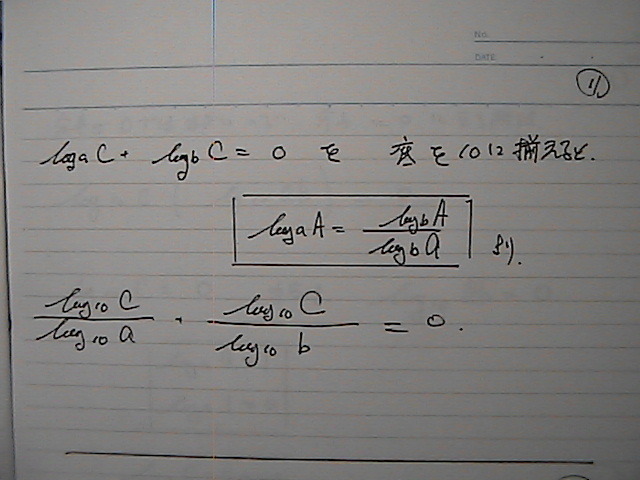 No.
DATE
1)
log a C + log b C = 0 を 底を10に揃えると.
log a A = log b A / log b a より.
log 10 C / log 10 a + log 10 C / log 10 b = 0.